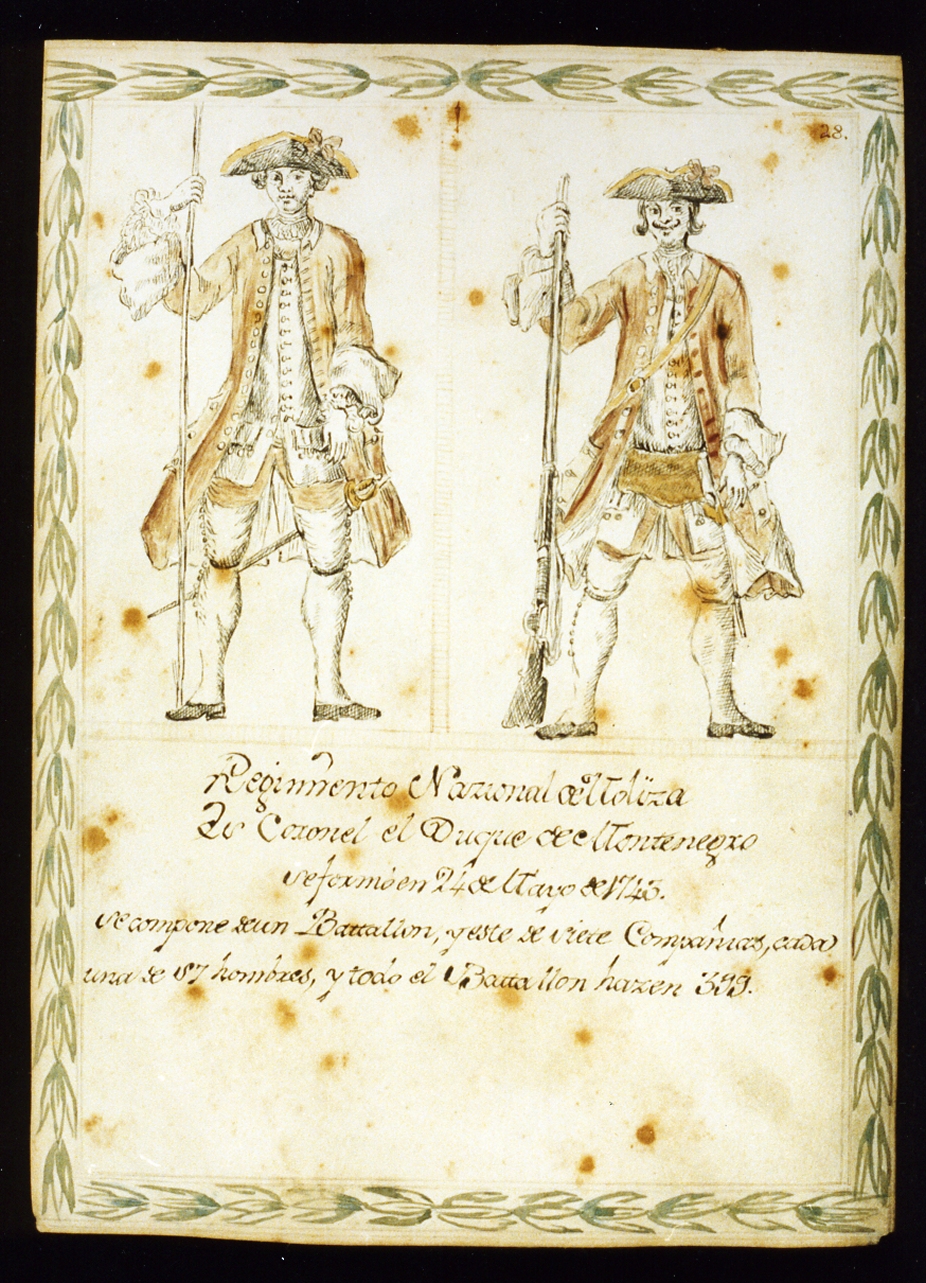 28.
Regimiento Nazional de Molïza
Es Coronel el Duque de Montenegro
se formó en 24 de Mayo de 1743.
se compone de un Battallon, y este de siete Compañias, cada
una de 57 hombres, y todo el Battallon hazen 399.